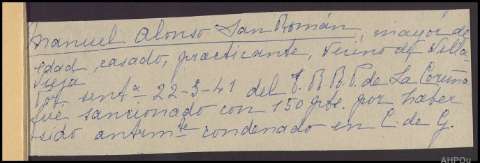 Manuel Alonso San Román, mayor de
edad, casado, practicante, vecino de Villa
vieja
Por sentª 22-3-41 del T.R.R.P. de La Coruña
fue sancionado con 150 pts. por haber
sido anterm.te condenado en C. de G.
AHPOu